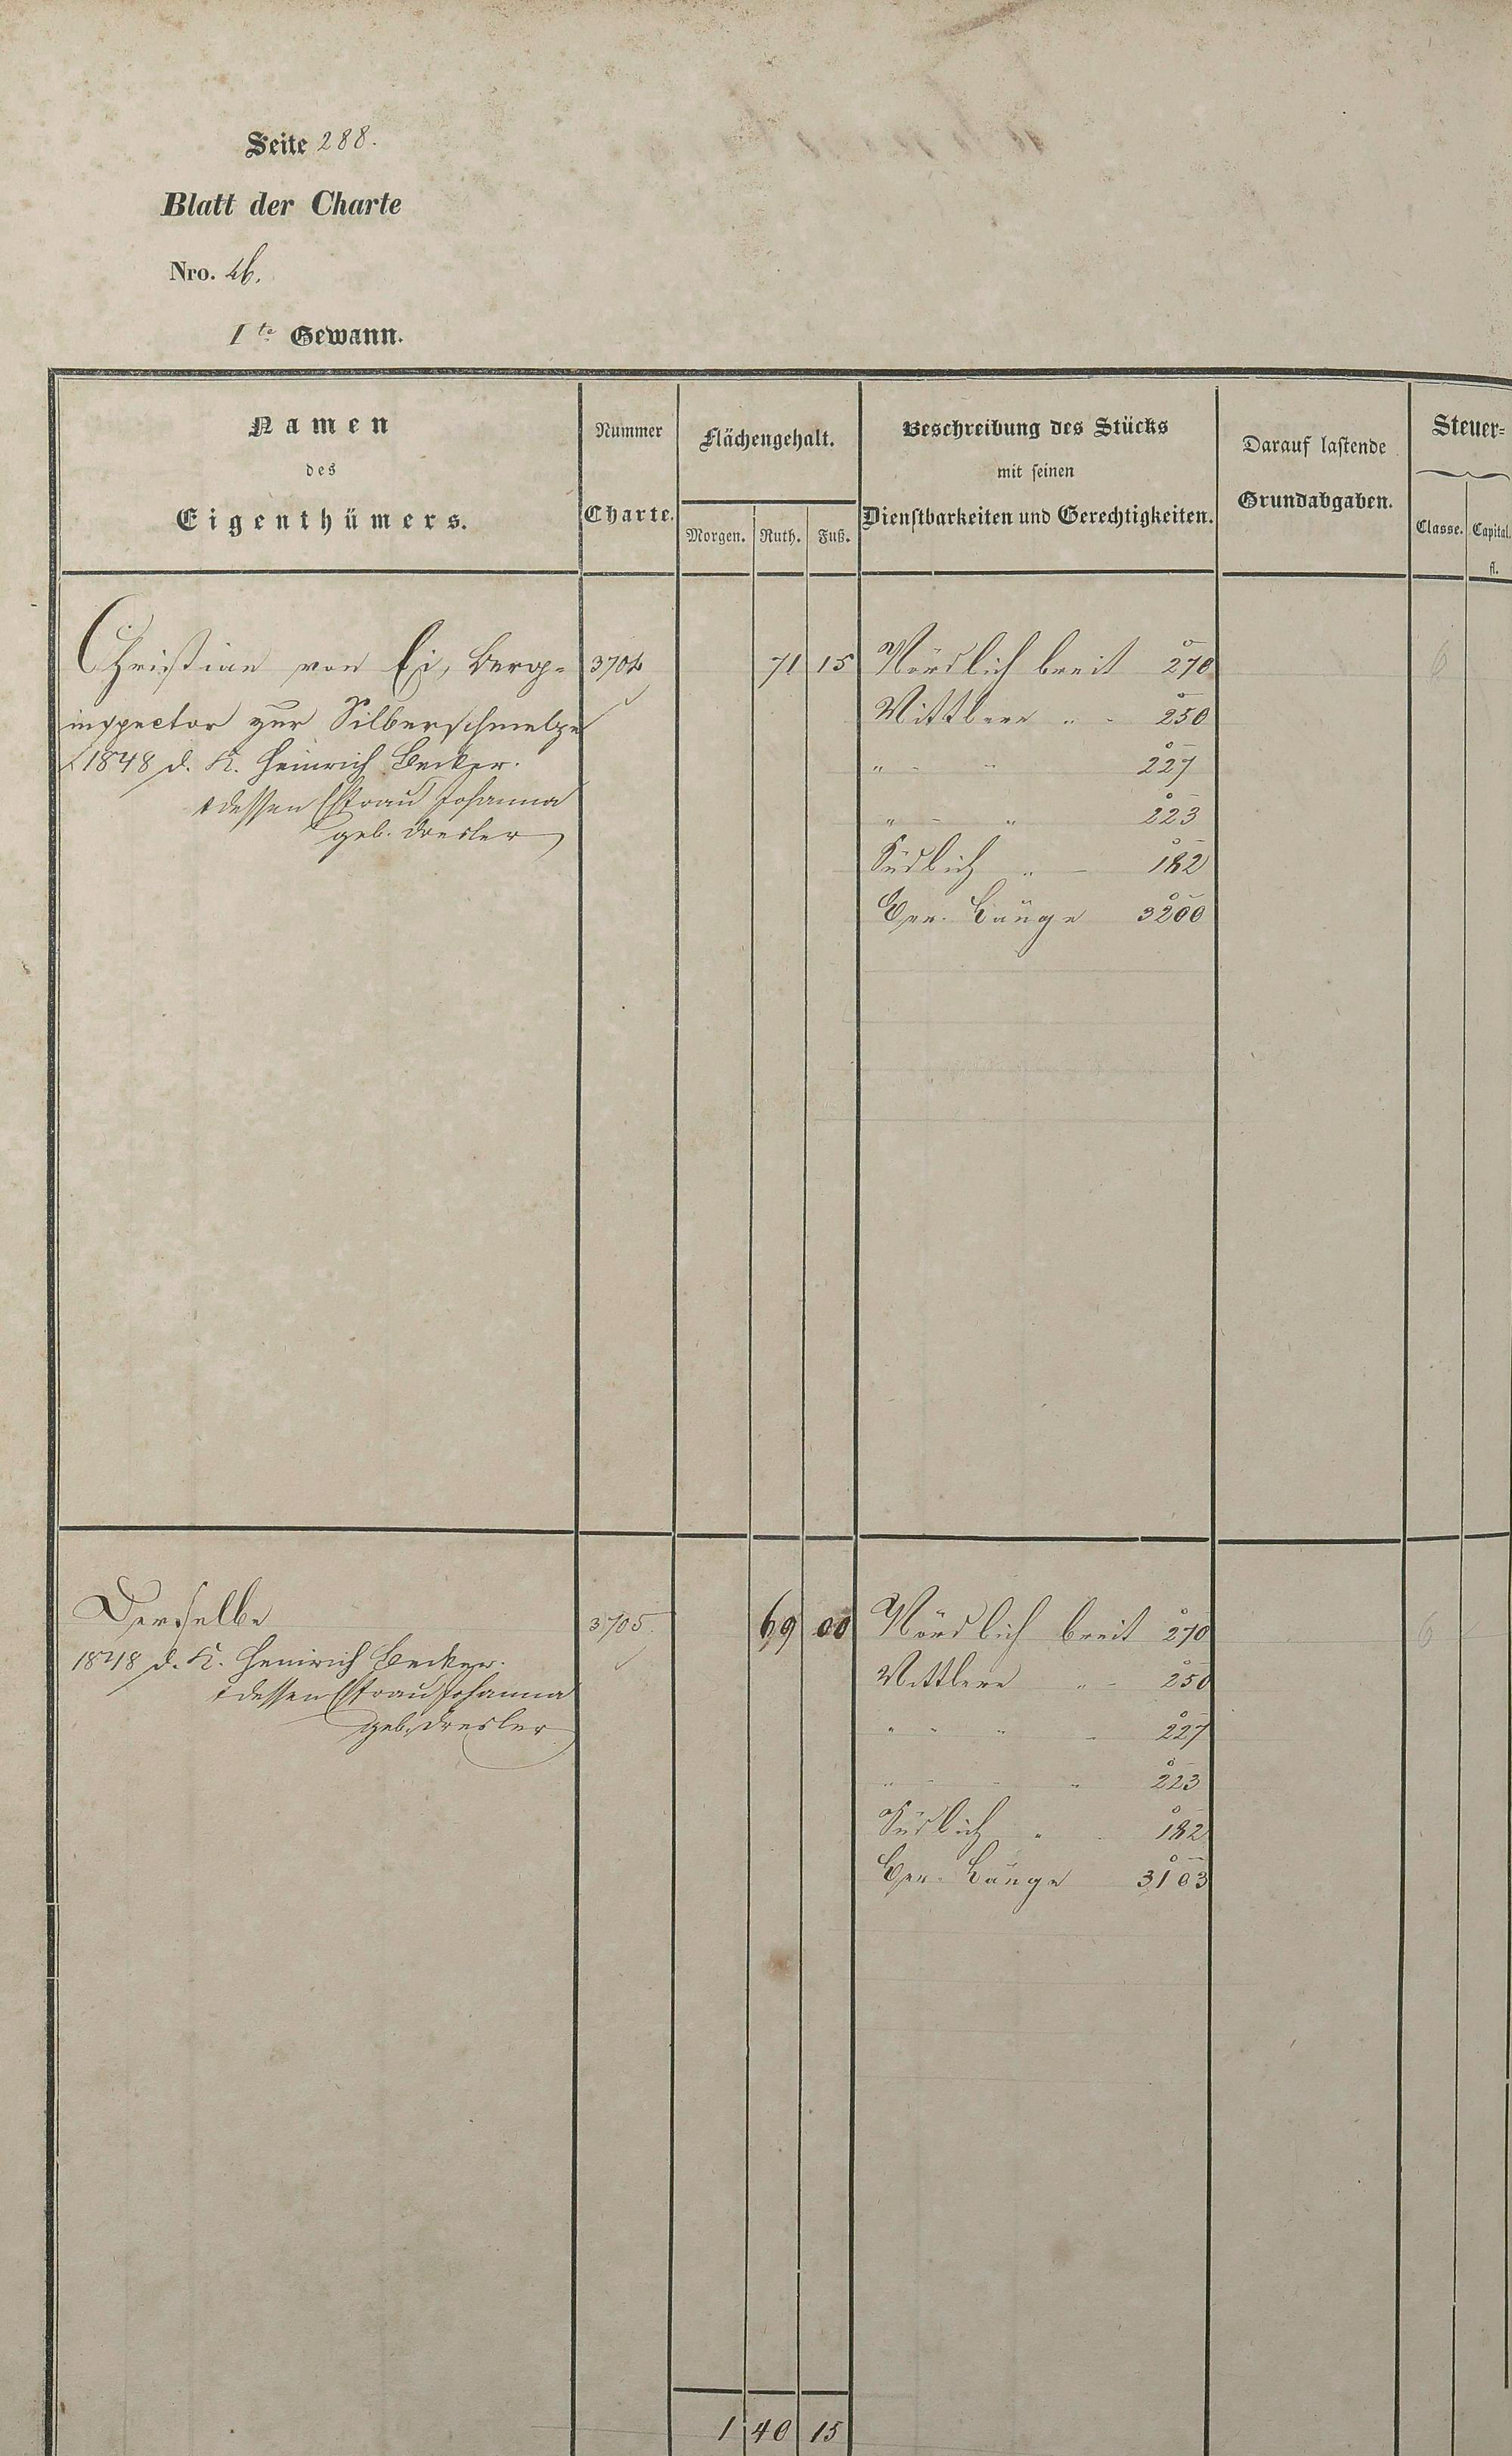 Seite 288.
Blatt der Charte
Nro. 26.
1te Gewann.
Namen
des
Eigenthümers.
Nummer
Charte.
Flächengehalt.
Morgen. Ruth. Fuß.
Beschreibung des Stücks
mit seinen
Dienstbarkeiten und Gerechtigkeiten.
Darauf lastende
Grundabgaben.
Steuer-
Classe. Capital.
fl.
Christian von Ei, Berg- 3704 71 15 Nördlich breit 270 6
inspector zur Silberschmelze Mittlere " - 250
1848 d. K. Heinrich Becker. " - " 227
& dessen Ehfrau Johanna " - " 223
geb. Dresler
Südlich " - 182
Ger. Länge 3200
Derselbe 3705. 69 00 Nördlich breit 270 6
1848 d. K. Heinrich Becker. Mittlere " - 250
& dessen Ehfrau Johanna
geb. Dresler " - " - 227
" - - " 223
Südlich " - 182
Ger. Länge 3103
1 40 15